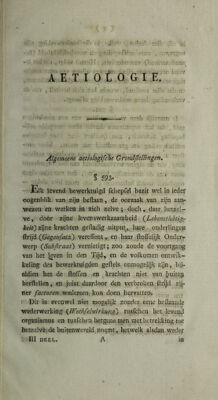 AETIOLOGIE.
Algemeene aetiologische Grondstellingen.
§ 593.
Een levend bewerktuigd schepsel bezit wel in ieder
oogenblik van zijn bestaan, de oorzaak van zijn aan-
wezen en werken in zich zelve; doch, daar hetzel-
ve, door zijne levenswerkzaamheid (Lebensthätig-
keit) zijne krachten gestadig uitput, hare, onderlingen
strijd (Gegensatz) vereffent, en haar stoffelijk Onder-
werp (Substraat) vernietigt; zoo zoude de voortgang
van het leven in den Tijd, en de volkomen ontwik-
keling des bewerktuigden gestels onmogelijk zijn, bij-
aldien het de stoffen en krachten niet van buiten
herstellen, en juist daardoor den verbroken strijd zij-
ner factoren wederom kon doen hervatten.
Dit is evenwel niet mogelijk zonder eene bestaande
wederwerking (Wechselwirkung) tusschen het levend
organismus en tusschen hetgene men met betrekking tot
hetzelve, de buitenwereld noemt, hetwelk alsdan weder
III DEEL. A in